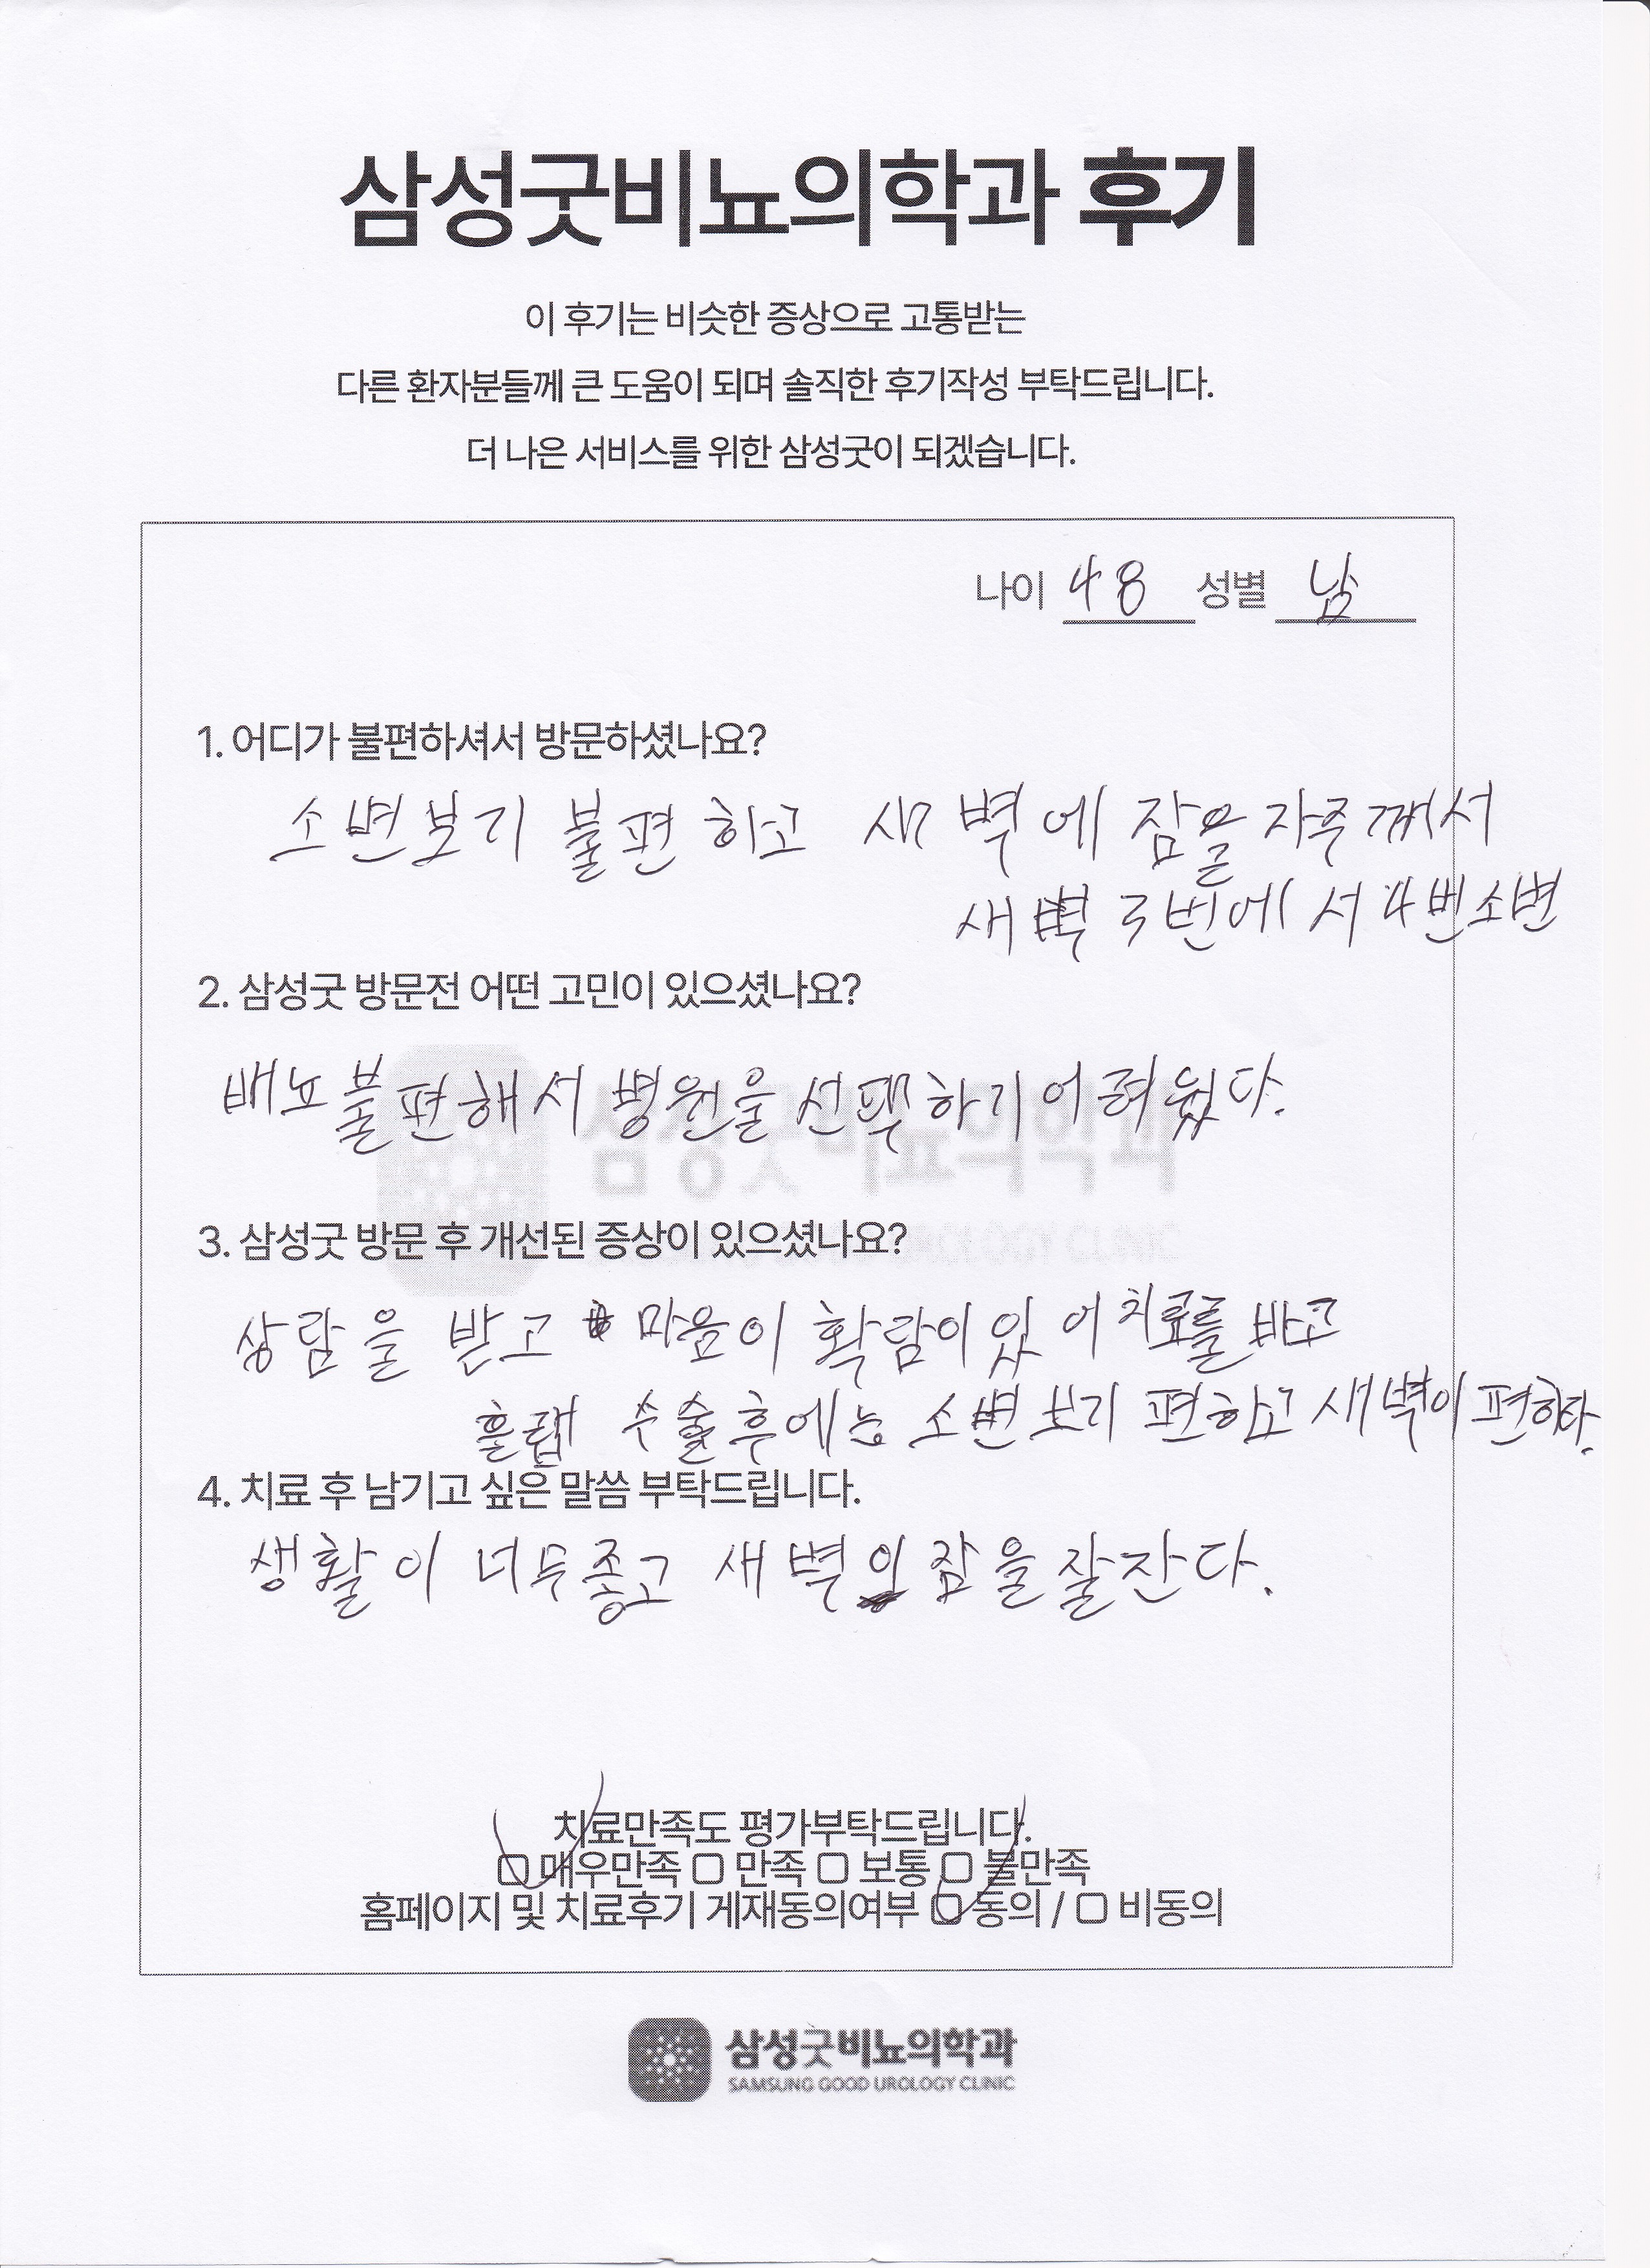 삼성굿비뇨의학과 후기
이 후기는 비슷한 증상으로 고통받는
다른 환자분들께 큰 도움이 되며 솔직한 후기작성 부탁드립니다.
더 나은 서비스를 위한 삼성굿이 되겠습니다.
나이 48 성별 남
1. 어디가 불편하셔서 방문하셨나요?
소변보기 불편하고 새벽에 잠을 자주 깨서
새벽 3번에서 4번 소변
2. 삼성굿 방문전 어떤 고민이 있으셨나요?
배뇨불편해서 병원을 선택하기 어려웠다.
3. 삼성굿 방문 후 개선된 증상이 있으셨나요?
상담을 받고 마음이 확람이 있어 치료를 바고
홀랩 수술후에는 소변보기 편하고 새벽이 편하다.
4. 치료 후 남기고 싶은 말씀 부탁드립니다.
생활이 너무좋고 새벽 잠을 잘잔다.
치료만족도 평가부탁드립니다.
매우만족 만족 보통 불만족
홈페이지 및 치료후기 게재동의여부 동의 / 비동의
삼성굿비뇨의학과
SAMSUNG GOOD UROLOGY CLINIC